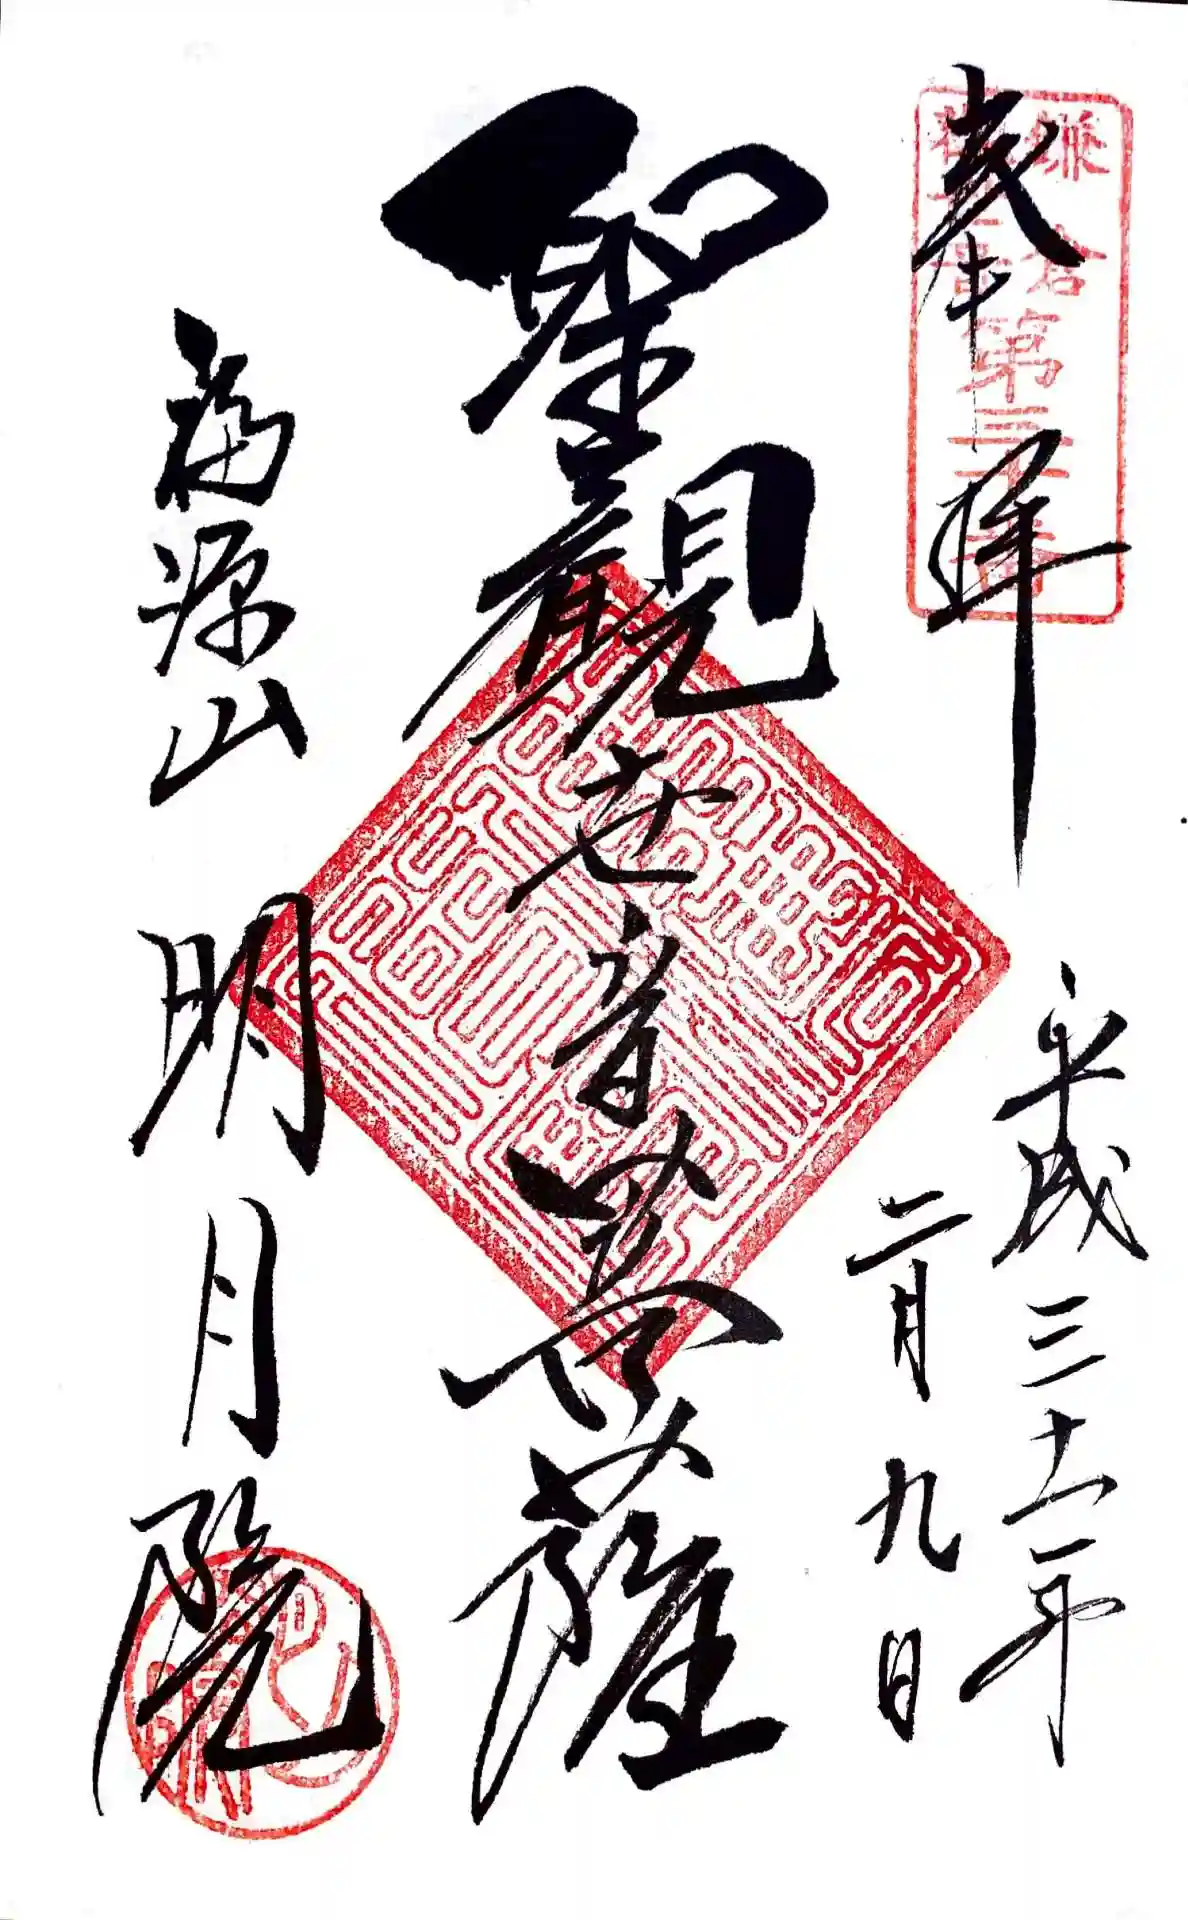 奉拝
鎌倉
第三十番
平成三十一年
二月九日
聖観世音菩薩
福源山
明月院